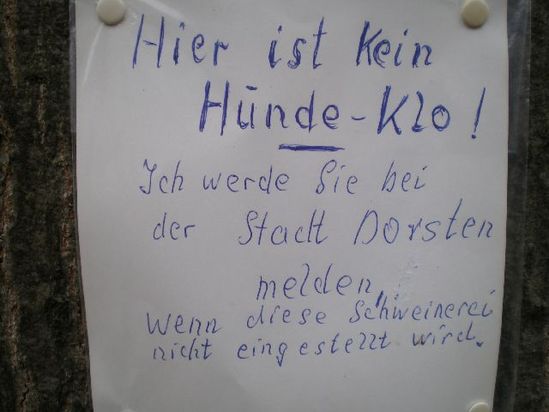 Hier ist kein
Hunde-Klo!
Ich werde Sie bei
der Stadt Dorsten
melden,
wenn diese Schweinerei
nicht eingestellt wird.